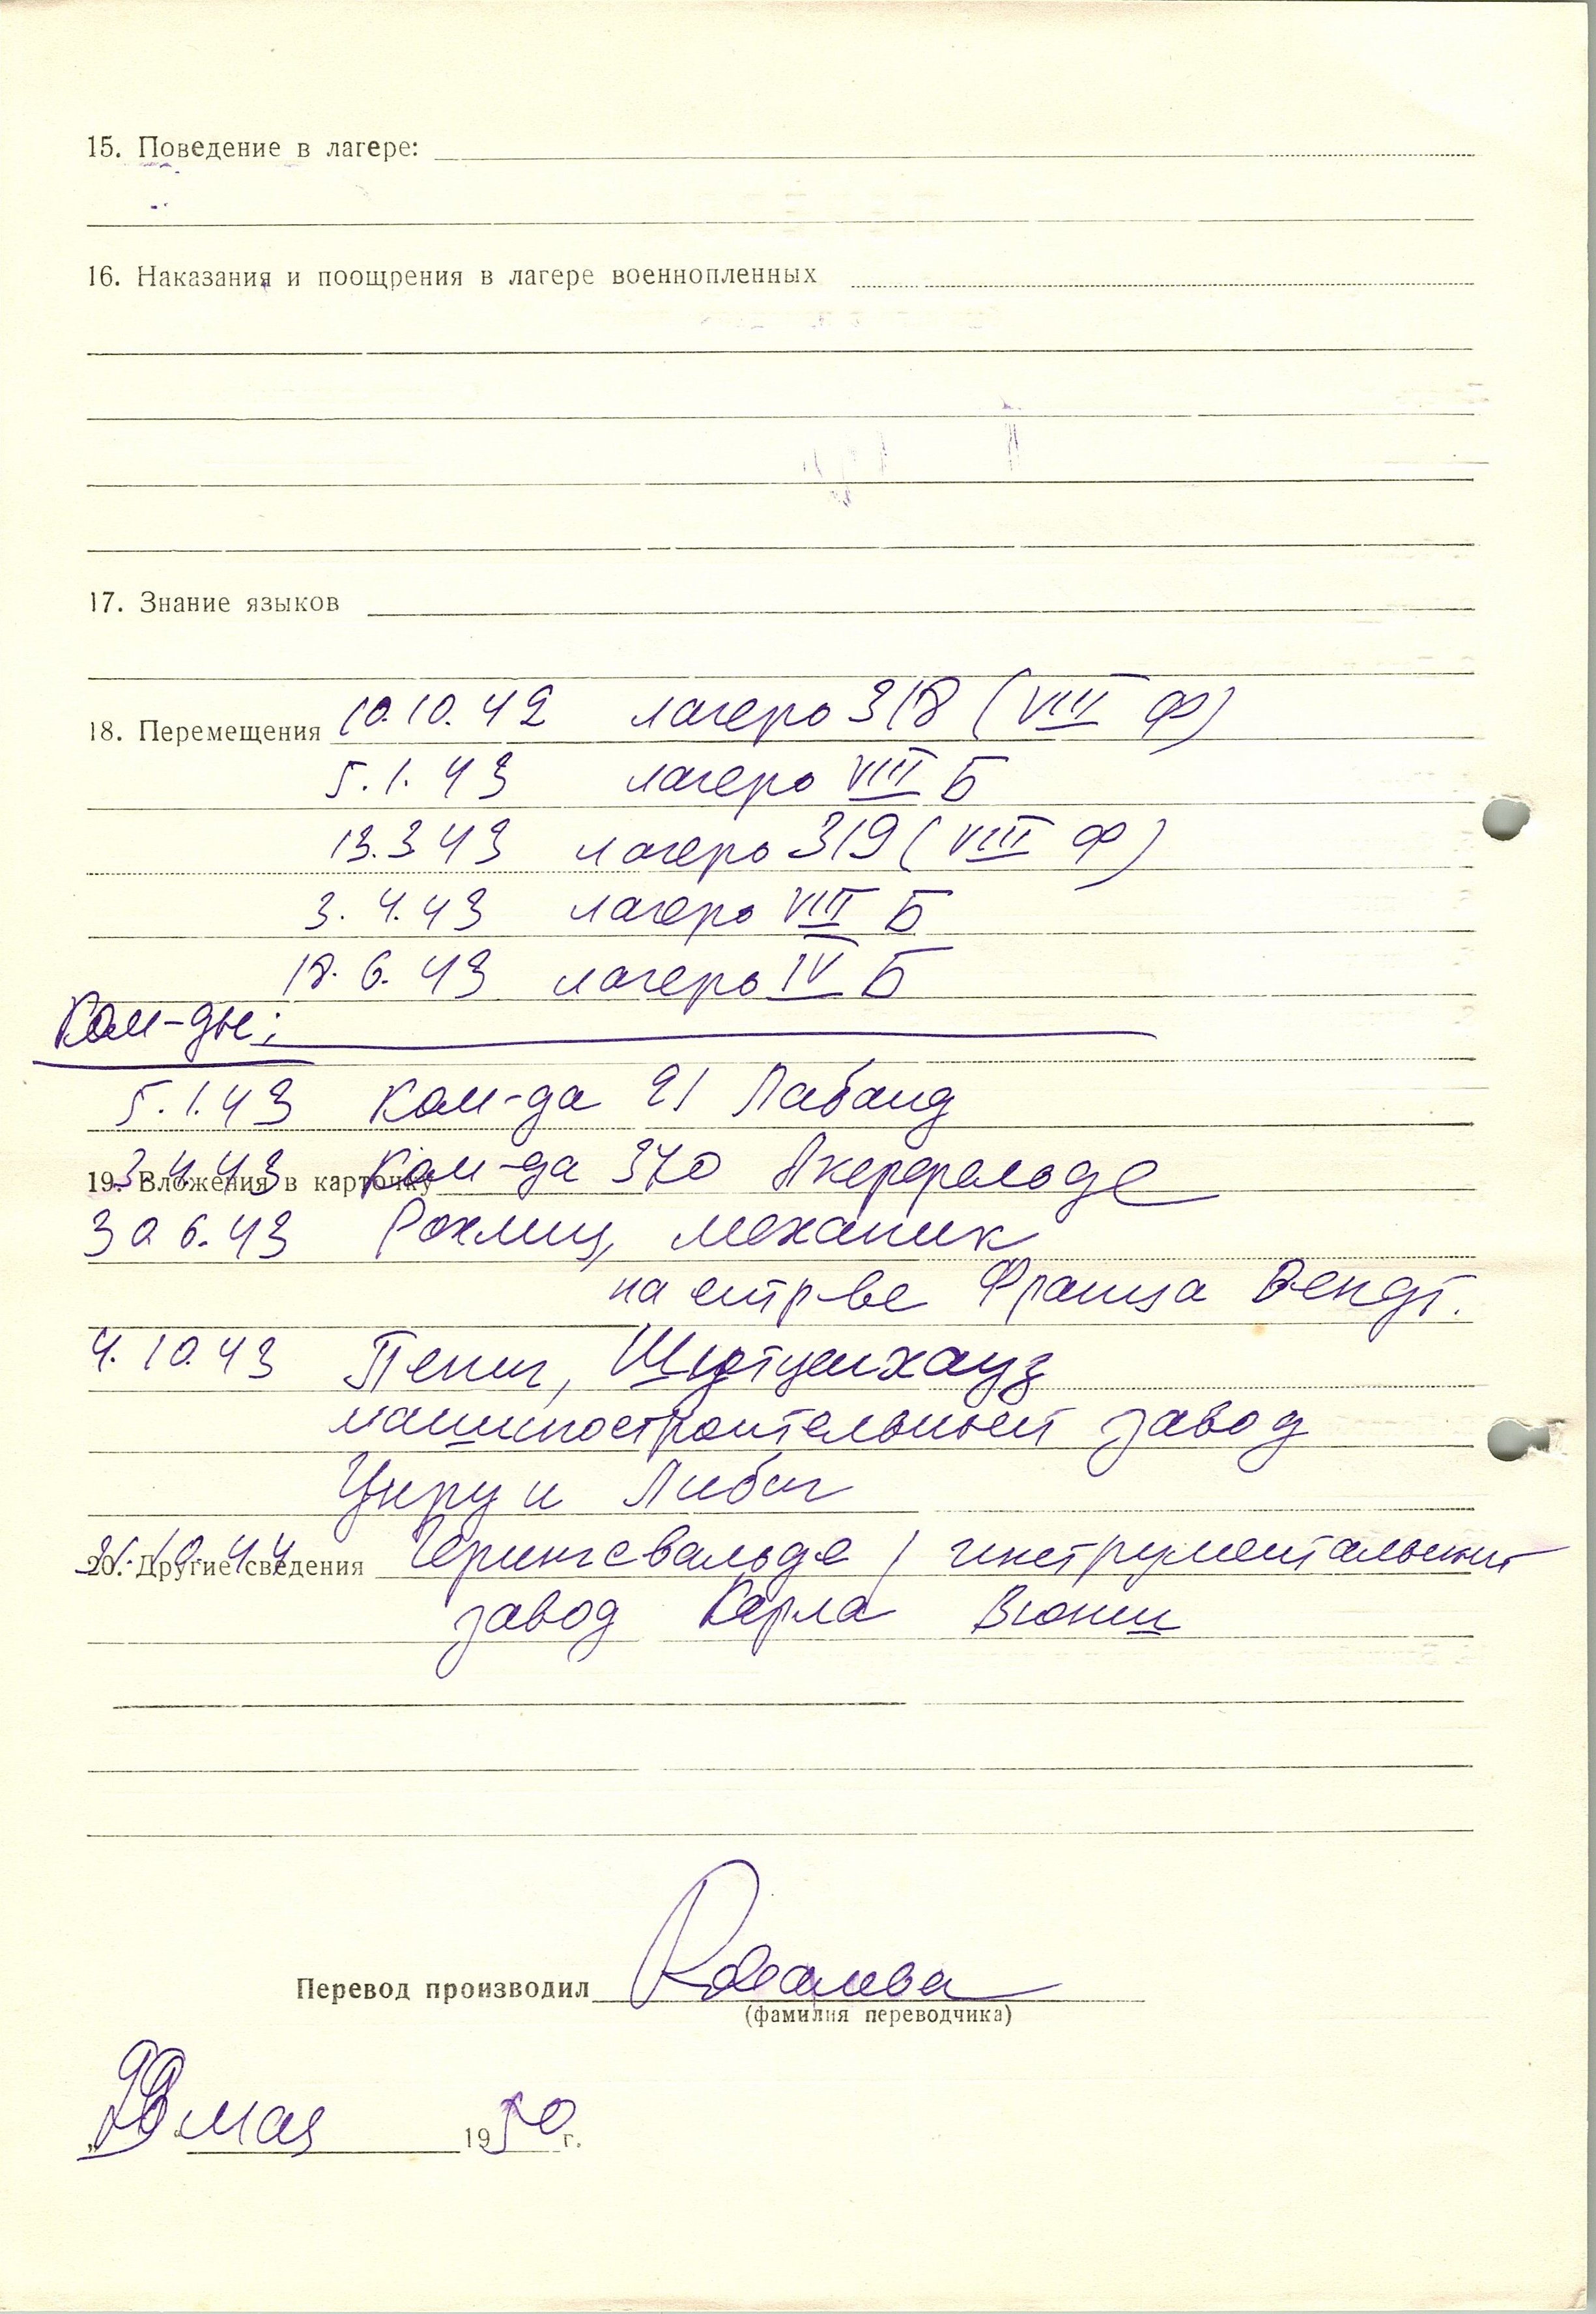 15. Поведение в лагере:
16. Наказания и поощрения в лагере военнопленных
17. Знание языков
18. Перемещения 10.10.42 лагерь 318 (VIII Ф)
5.1.43 лагерь VIII Б
13.3.43 лагерь 319 (VIII Ф)
3.4.43 лагерь VIII Б
18.6.43 лагерь IV Б
Ком-ды:
5.1.43 Ком-да 21 Лабанд
19. Вложения в карточку
3.4.43 Ком-да 370 Акерфельде
30.6.43 Рохлиц, механик
на стр-ве Франца Вендт.
4.10.43 Пениг, Шютценхауз
машиностроительный завод
Унру и Либиг
20. Другие сведения
21.10.44 Герингсвальде / инструментальный
завод Карла Вюнш
Перевод производил
(фамилия переводчика)
„29" мая 1950 г.